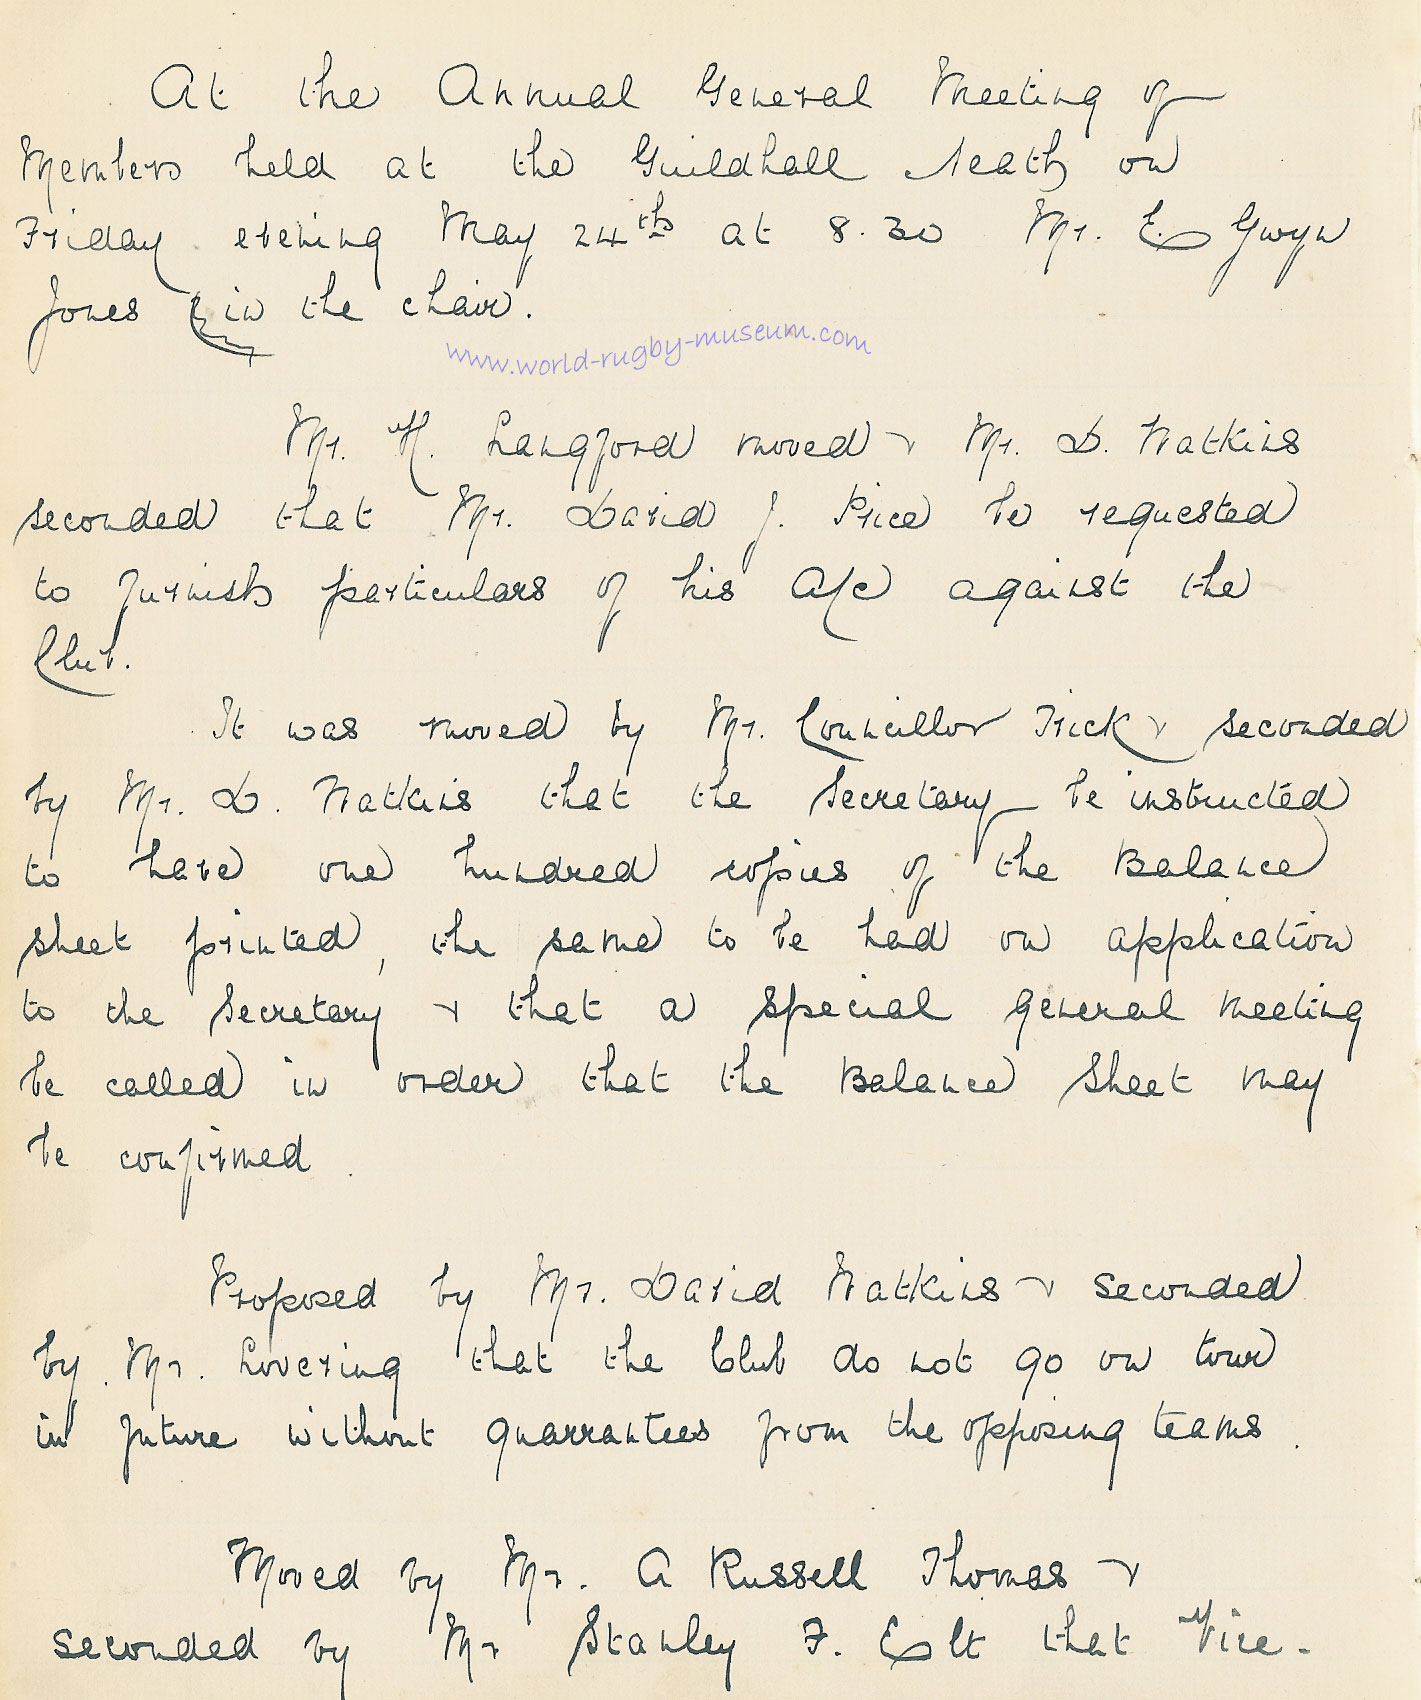 At the Annual General Meeting of
Members held at the Guildhall Neath on
Friday evening May 24th at 8.30 Mr. E Gwyn
Jones in the chair.
www.world-rugby-museum.com
Mr. H. Langford moved & Mr. D. Watkins
seconded that Mr. David J. Price be requested
to furnish particulars of his A/c against the
Club.
It was moved by Mr. Councillor Trick & seconded
by Mr. D. Watkins that the Secretary be instructed
to have one hundred copies of the Balance
sheet printed, the same to be had on application
to the Secretary & that a special general meeting
be called in order that the Balance Sheet may
be confirmed.
Proposed by Mr. David Watkins & seconded
by Mr. Lovering that the Club do not go on tour
in future without guarrantees from the opposing teams.
Moved by Mr. A Russell Thomas &
seconded by Mr Stanley F. Elt that Vice-